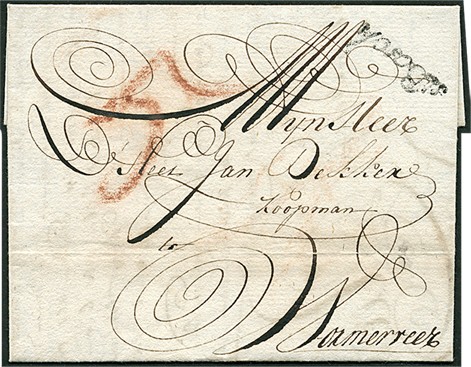 Mÿn Heer
De Heer Jan Dekker
Koopman
te
Wormerveer